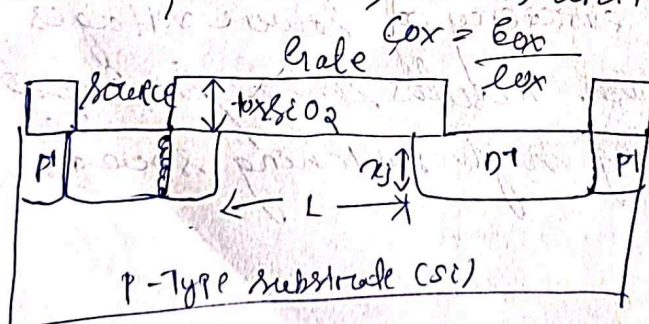 Cox = Eox
tox
Gate
Source
tox SiO2
P+
xj
n+
P+
L
P-Type substrate (Si)